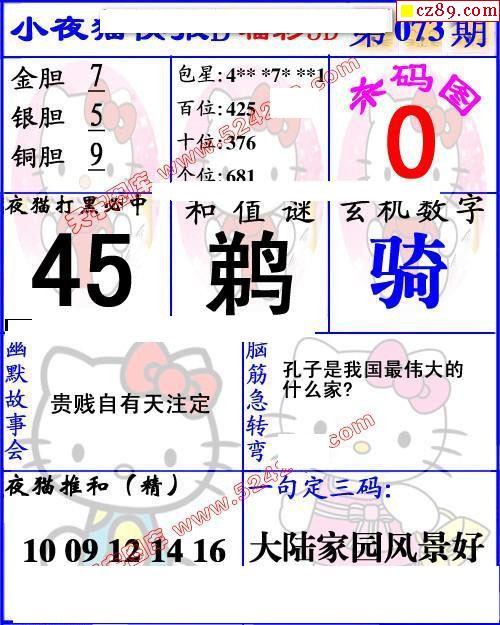 cz89.com
小夜猫快报D 福彩3D 第073期
金胆 7
银胆 5
铜胆 9
包星:4** *7* **1
百位:425
十位:376
个位:681
杀码图
0
夜猫打黑必中
45
和值谜
鹈
玄机数字
骑
幽默故事会
贵贱自有天注定
脑筋急转弯
孔子是我国最伟大的
什么家?
夜猫推和（精）
10 09 12 14 16
一句定三码:
大陆家园风景好